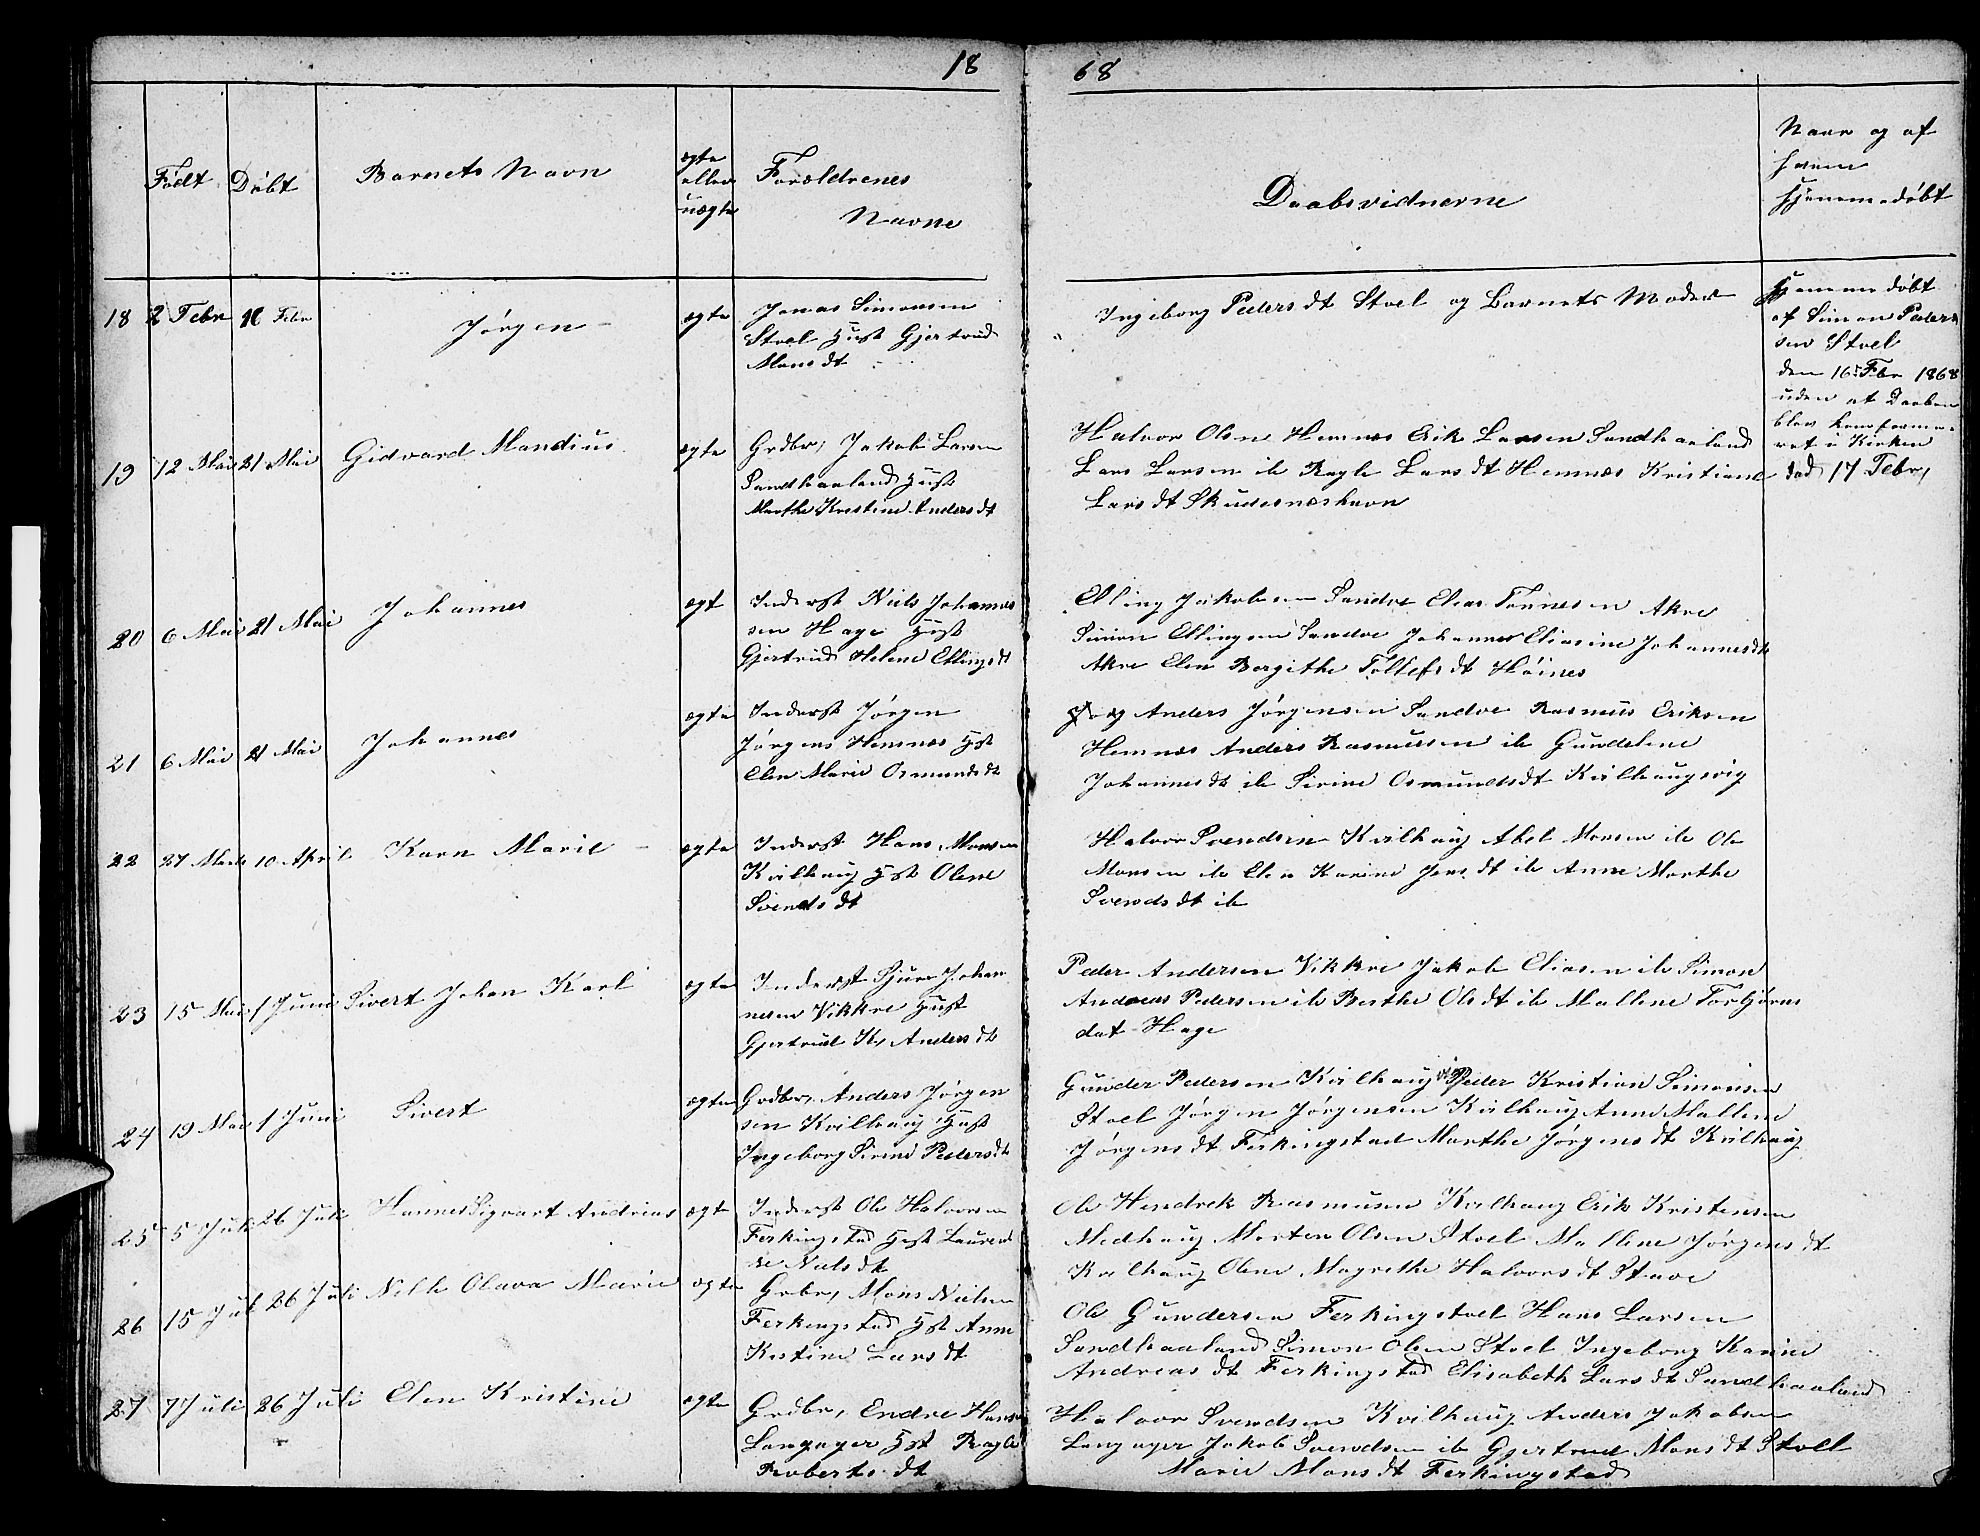 18 68
Født Døbt Barnets Navn ægte eller uægte Forældrenes Navne Daabsvidnerne Naar og af hvem hjemmedøbt
18 2 Febr 16 Febr Jørgen ægte Jonas Simonsen
Stoel Hust Gjertrud
Mons dt
Ingeborg Peders dt Stoel og Barnets Moder
Hjemme døbt
af Simon Peder
sen Stoel
den 16 Febr 1868
uden at Daaben
blev konfirme
ret i Kirken
død 17 Febr,
19 12 Mai 21 Mai Gidvard Mandius ægte Grdbr, Jakob Larsen
Sandhaaland Hust
Marthe Kristine Anders dt
Halvor Olsen Hemnæs Erik Larsen Sandhaaland
Lars Larsen ib Ragle Lars dt Hemnæs Kristiane
Lars dt Skudesnæshavn
20 6 Mai 21 Mai Johannes ægt Inderst Niels Johannes
sen Hage Hust
Gjertrud Helene Ellings dt
Elling Jakobsen Sandve Elias Tønnesen Akre
Simon Ellingsen Sandve Johanne Eliasine Johannesdt
Akre Elen Bergithe Tollefs dt Høines
21 6 Mai 21 Mai Johannes ægte Inderst Jørgen
Jørgens Hemnæs Hst
Elen Marie Osmunds dt
Anders Jørgensen Sandve Rasmus Eriksen
Hemnæs Anders Rasmussen ib Gundelene
Johannes dt ib Sirine Osmundsdt Kvilhaugsvig
22 27 Mars 10 April Karn Marie ægte Inderst Hans Monsen
Kvilhaug Hst Olene
Svends dt
Halvor Svendsen Kvilhaug Abel Monsen ib Ole
Monsen ib Elen Karine Jens dt ib Anne Marthe
Svends dt ib
23 15 Mai 1 Juni Sivert Johan Karl ægte Inderst Sjur Johan
nesen Vikkre Hust
Gjertrud Kr, Anders dt
Peder Andersen Vikkre Jakob Eliasen ib Simon
Andreas Pedersen ib Berthe Ols dt ib Mallene Torbjørns
dat Hage
24 19 Mai 1 Juni Sivert ægte Grdbr, Anders Jørgen
sen Kvilhaug Hust
Ingeborg Sirine Peders dt
Gunder Pedersen Kvilhaug Peder Kristian Simonsen
Stoel Jørgen Jørgensen Kvilhaug Anne Mallene
Jørgens dt Ferkingstad Marthe Jørgens dt Kvilhaug
25 5 Juli 26 Juli Hannes Sigvart Andreas ægte Inderst Ole Halvorsen
Ferkingstad Hust Laurend
se Niels dt
Ole Hendrek Rasmusen Kvilhaug Erik Kristensen
Medhaug Morten Olsen Stoel Mallene Jørgens dt
Kvilhaug Olene Magrethe Halvors dt Stave
26 15 Juli 26 Juli Nille Olava Marie ægte Grbr, Mons Nielsen
Ferkingstad Hst Anne
Kristine Lars dt
Ole Gundersen Ferkingstad Hans Larsen
Sandhaaland Simon Olsen Stoel Ingeborg Karine
Andreas dt Ferkingstad Elisabeth Lars dt Sandhaaland
27 7 Juli 26 Juli Elen Kristine ægte Grdbr, Endre Hansen
Langager Hst Ragle
Roberts dt
Halvor Svendsen Kvilhaug Anders Jakobsen
Langager Jakob Svendsen ib Gjertrud Mons dt Stoel
Marie Mons dt Ferkingstad